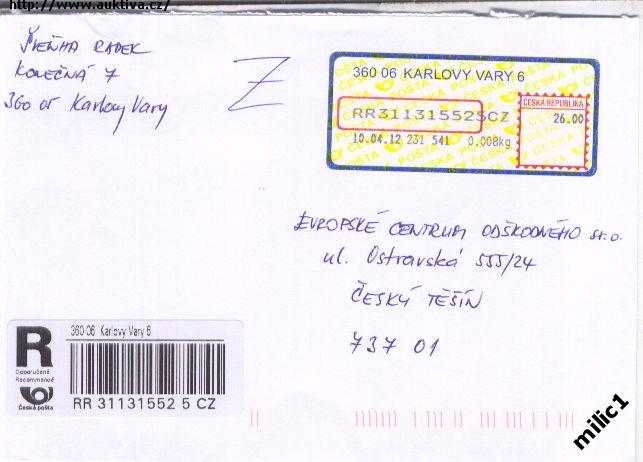 http://www.auktiva.cz/
RADEK
7
360 05 Karlovy Vary
Z
360 06 KARLOVY VARY 6
RR311315525CZ
10.04.12 231 541 0,008kg
ČESKÁ REPUBLIKA
26.00
ČESKÁ POŠTA
EVROPSKÉ CENTRUM ODŠKODNÉHO s.r.o.
ul. Ostravská 555/24
ČESKÝ TĚŠÍN
737 01
360 06 Karlovy Vary 6
R
Doporučeně
Recommandé
Česká pošta
RR 31131552 5 CZ
milic1